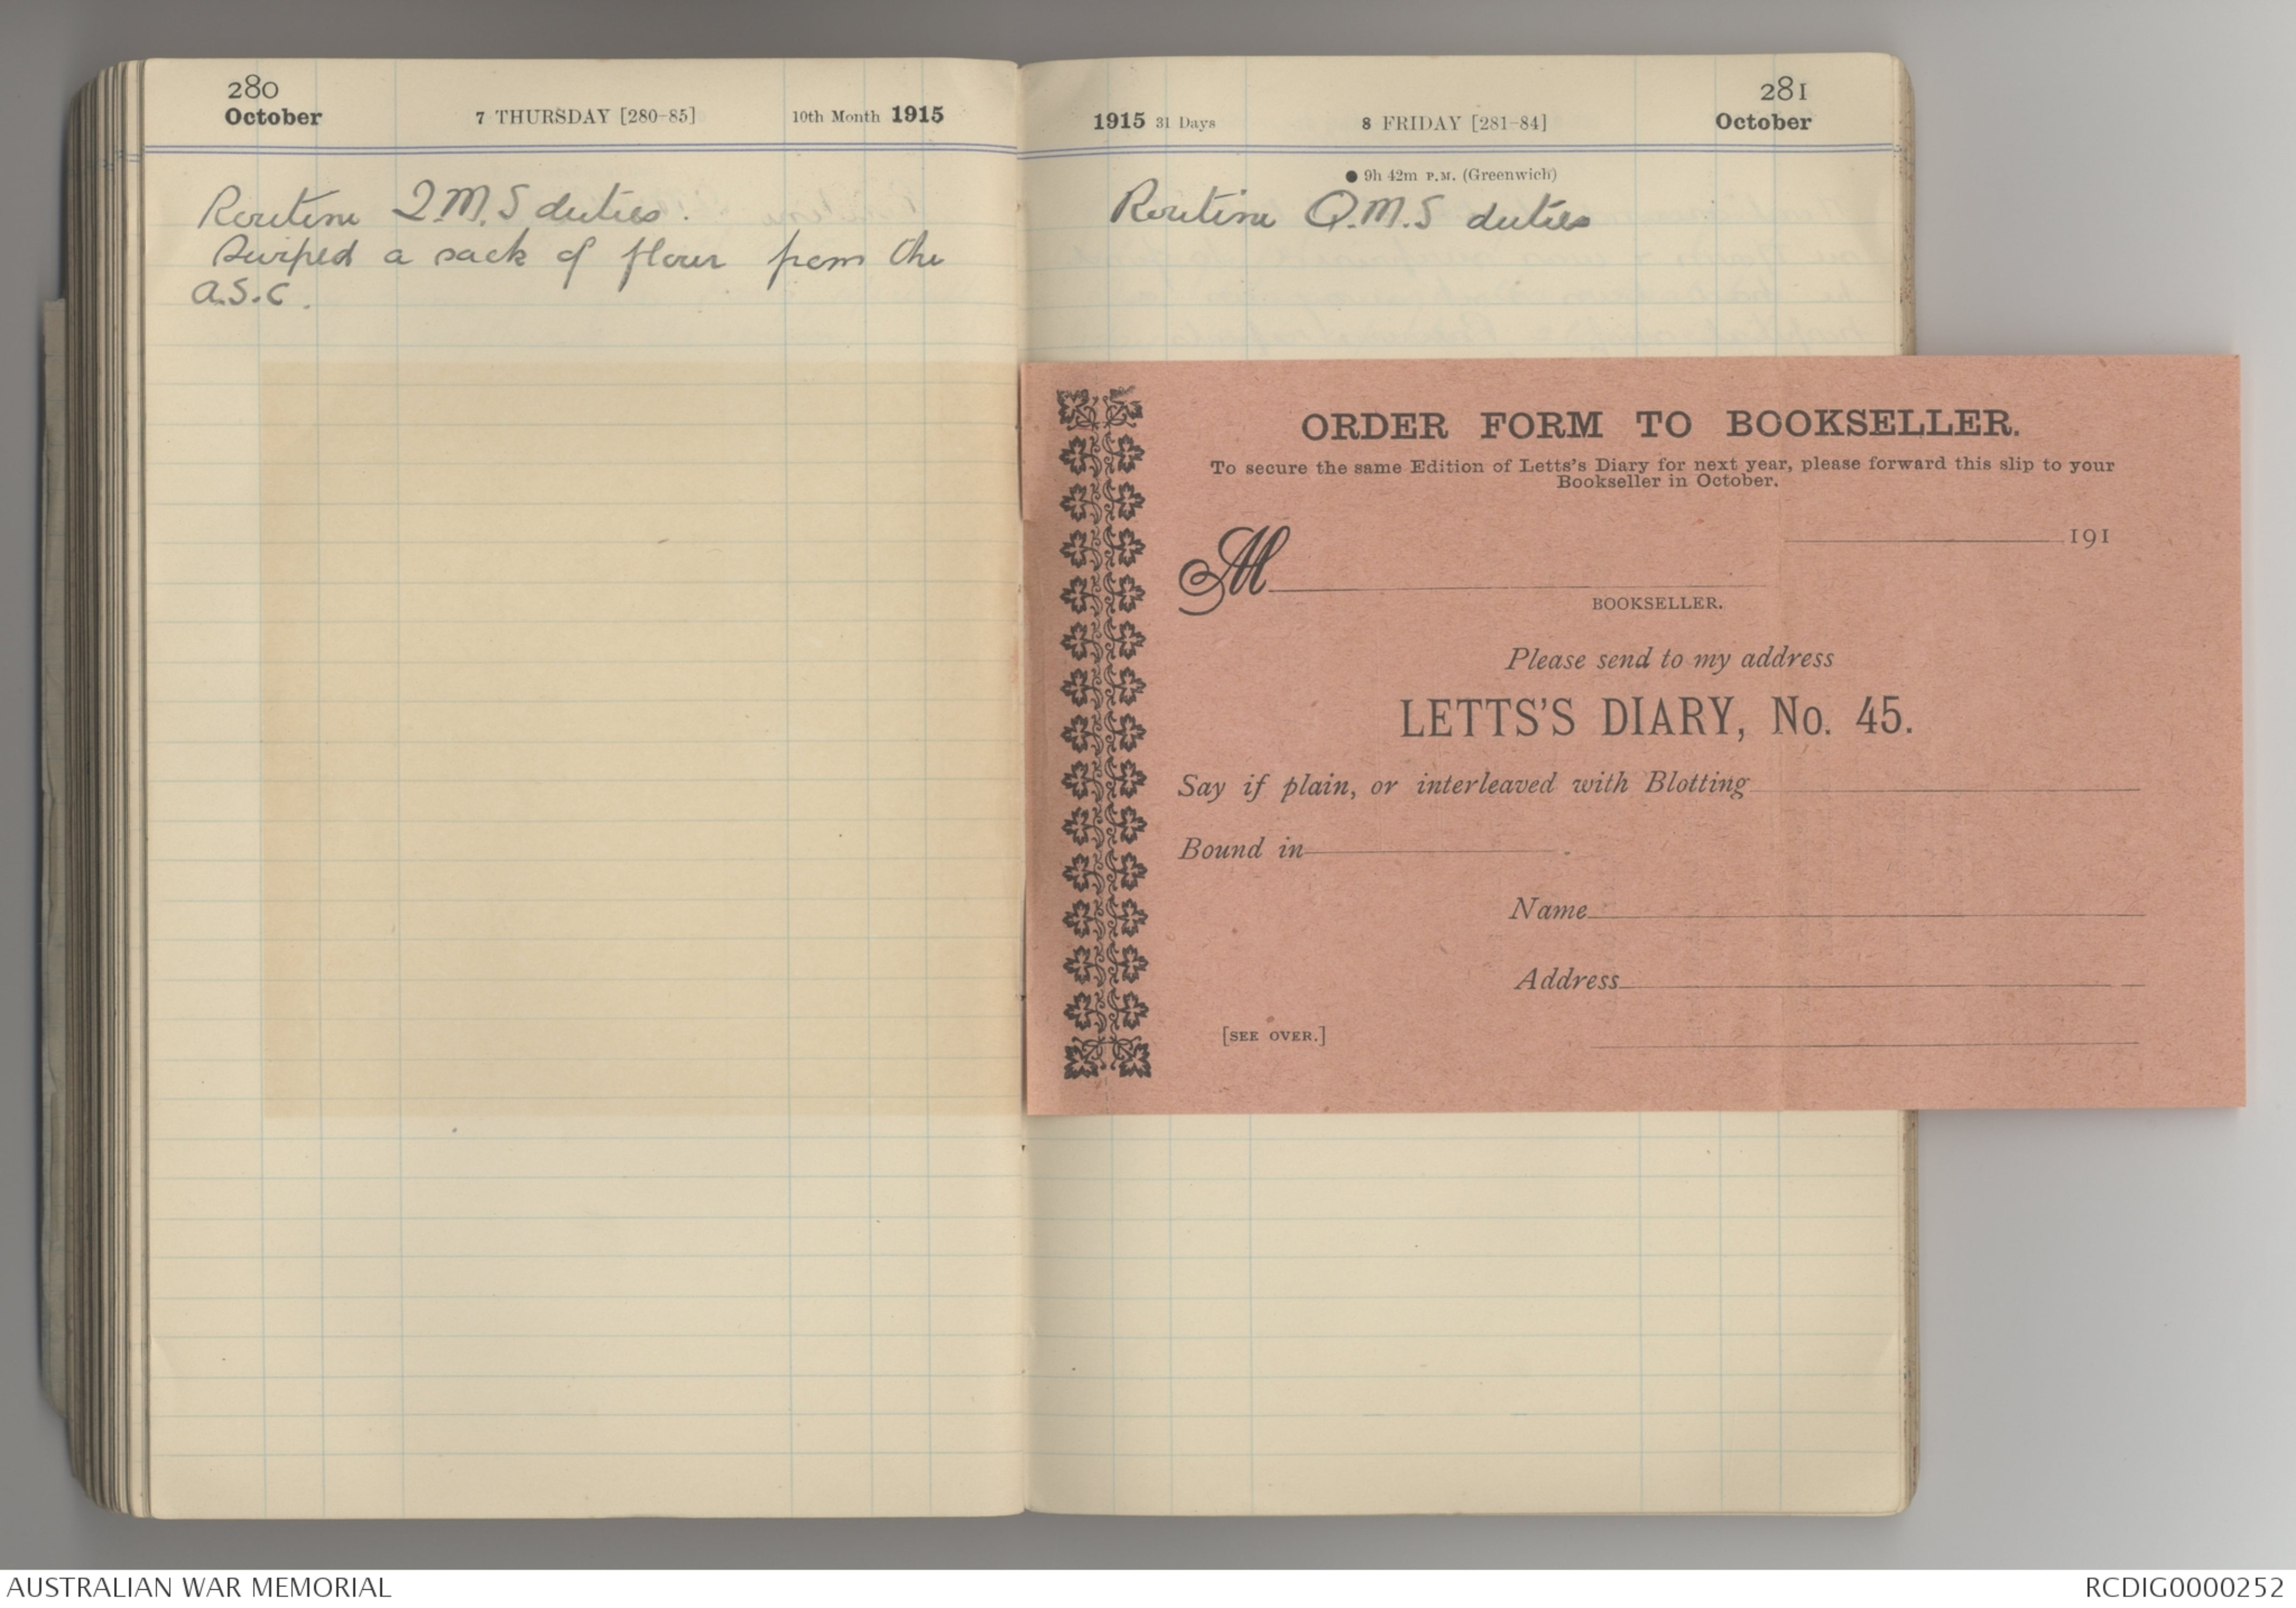 280
October 7 THURSDAY [280-85] 10th Month 1915
Routine Q.M.S duties.
Swiped a sack of flour from the
A.S.C.
281
1915 31 Days 8 FRIDAY [281-84] October
● 9h 42m P.M. (Greenwich)
Routine Q.M.S duties
ORDER FORM TO BOOKSELLER.
To secure the same Edition of Letts's Diary for next year, please forward this slip to your
Bookseller in October.
191
M
BOOKSELLER.
Please send to my address
LETTS'S DIARY, No. 45.
Say if plain, or interleaved with Blotting
Bound in
Name
Address
[SEE OVER.]
AUSTRALIAN WAR MEMORIAL RCDIG0000252